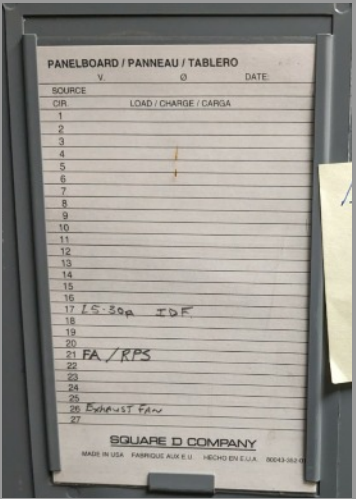 PANELBOARD / PANNEAU / TABLERO
V. Ø DATE:
SOURCE
CIR. LOAD / CHARGE / CARGA
1
2
3
4
5
6
7
8
9
10
11
12
13
14
15
16
17 L5-30R IDF
18
19
20
21 FA/RPS
22
23
24
25
26 EXHAUST FAN
27
SQUARE D COMPANY
MADE IN USA FABRIQUE AUX E.U. HECHO EN E.U.A.